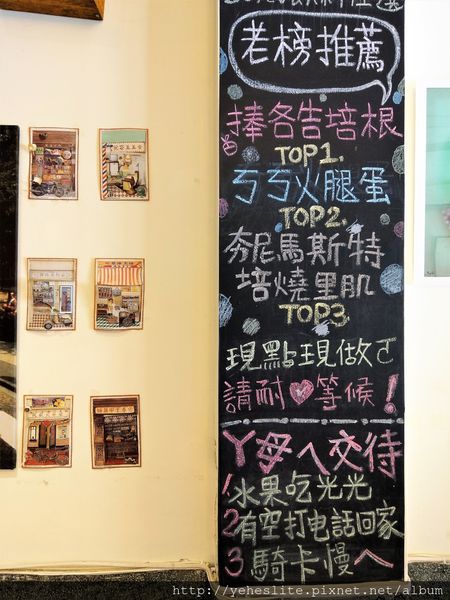 老榜推薦
捧各告培根
TOP1.
ㄎㄎ火腿蛋
TOP2.
夯尼馬斯特
培燒里肌
TOP3
現點現做ㄛ
請耐♥等候!
ㄚ母ㄟ交待
1.水果吃光光
2有空打电話回家
3騎卡慢ㄟ
http://yeheslite.pixnet.net/album